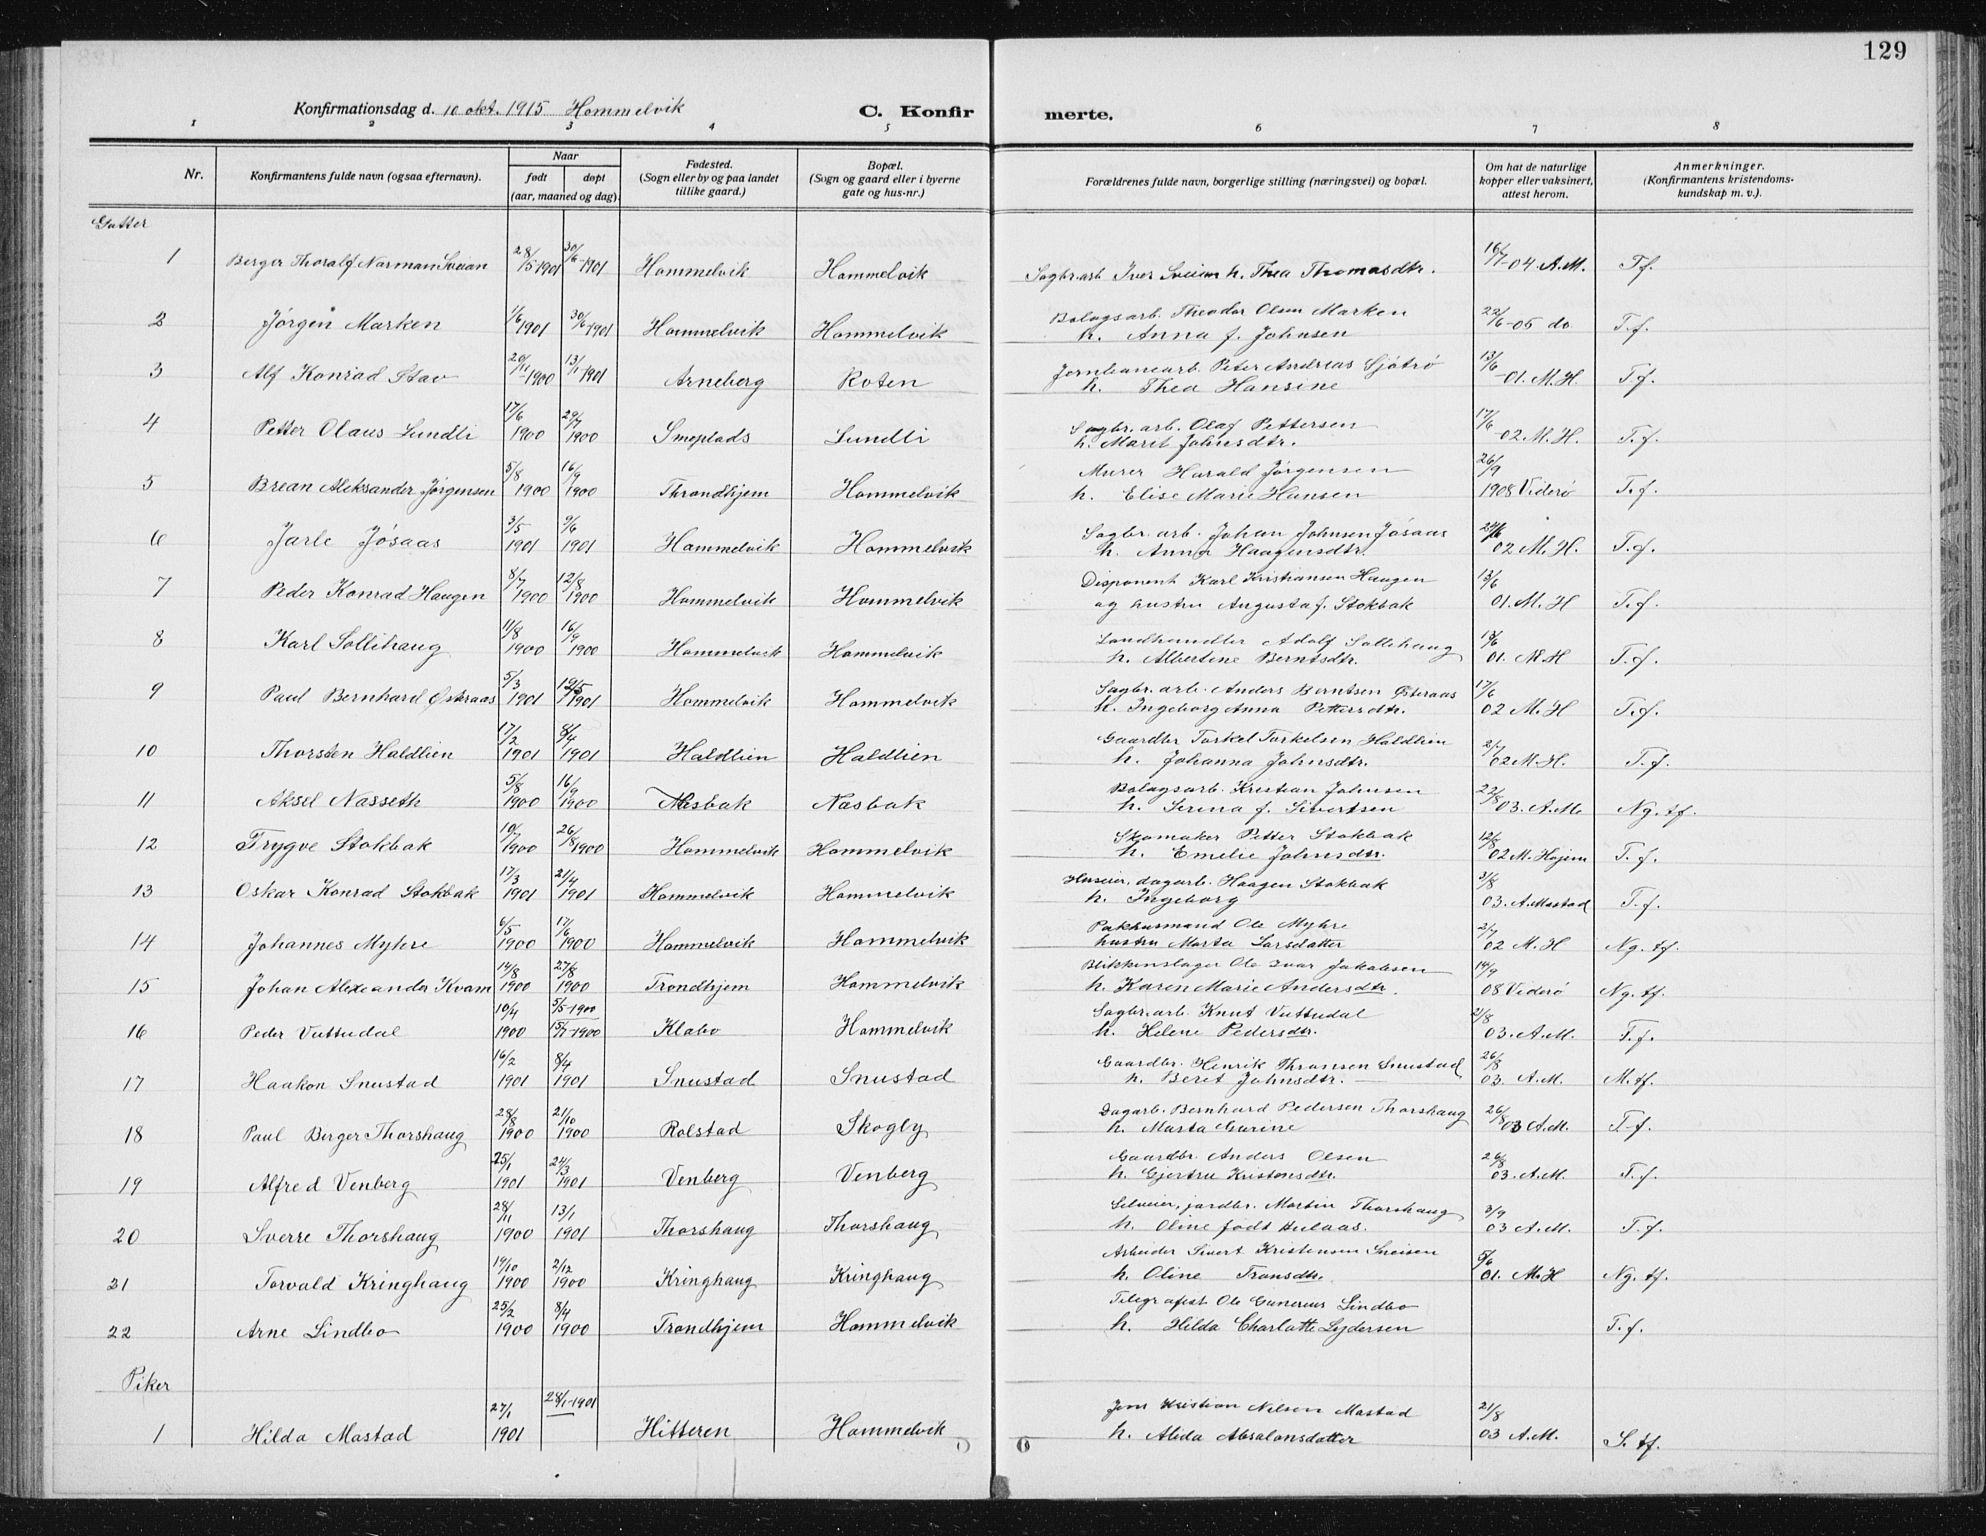 129
Konfirmationsdag d. 10 okt. 1915 Hommelvik C. Konfirmerte.
1 2 3 4 5 6 7 8
Nr. Konfirmantens fulde navn (ogsaa efternavn). Naar født døpt (aar, maaned og dag) Fødested. (Sogn eller by og paa landet tillike gaard.) Bopæl. (Sogn og gaard eller i byerne gate og hus-nr.) Forældrenes fulde navn, borgerlige stilling (næringsvei) og bopæl. Om hat de naturlige kopper eller vaksinert, attest herom. Anmerkninger. (Konfirmantens kristendomskundskap m. v.).
Gutter
1 Berger Thoralf Norman Sveian 28/5 1901 30/6 1901 Hommelvik Hommelvik Sagbr.arb. Iver Sveian h. Thea Thomasdtr. 16/7-04. A.M. T.f.
2 Jørgen Marken 1/6 1901 30/6 1901 Hommelvik Hommelvik Bolagsarb. Theodor Olsen Marken 22/6-05 do T.f.
h. Anna f. Johnsen
3 Alf Konrad Stav 20/11 1900 13/1 1901 Arneberg Roten Jernbanearb. Peter Andreas Gjøtrø 13/6-01. M.H. T.f.
h. Thea Hansine
4 Petter Olaus Lundli 17/6 1900 29/7 1900 Smeplads Lundli Sagbr. arb. Olaf Pettersen 17/6-02. M.H. T.f.
h. Marit Johnsdtr.
5 Brean Aleksander Jørgensen 5/8 1900 16/9 1900 Throndhjem Hommelvik Murer Harald Jørgensen 26/9 1908 Viderö T.f.
h. Elise Marie Hansen
6 Jarle Jøsaas 3/5 1901 9/6 1901 Hommelvik Hommelvik Sagbr. arb. Johan Johnsen Jøsaas 02 M.H. T.f.
h. Anna Haagensdtr.
7 Peder Konrad Haugen 8/7 1900 12/8 1900 Hommelvik Hommelvik Disponent Karl Kristiansen Haugen 13/6 01. M.H T.f.
og hustru Augusta f. Stokbak
8 Karl Sollihaug 11/8 1900 16/9 1900 Hommelvik Hommelvik Landhandler Adolf Sollihaug 13/6 01. M.H T.f.
h. Albertine Berntsdtr.
9 Paul Bernhard Østeraas 5/3 1901 12/5 1901 Hommelvik Hommelvik Sagbr. arb. Anders Berntsen Østeraas 17/6 02 M.H T.f.
h. Ingeborg Anna Pettersdtr.
10 Thorsten Haldlien 17/2 1901 8/4 1901 Haldlien Haldlien Gaardbr Torkel Torkelsen Haldlien 2/7 02 M.H. T.f.
h. Johanna Johnsdtr.
11 Aksel Nasseth 5/8 1900 16/9 1900 Næsbak Næsbak Bolagsarb. Kristian Johnsen 22/8 03. A.M. Ng. tf.
h. Serina f. Sivertsen
12 Trygve Stokbak 10/7 1900 26/8 1900 Hommelvik Hommelvik Skomaker Petter Stokbak 12/8 02 M. Hojem T.f.
h. Emelie Johnsdtr.
13 Oskar Konrad Stokbak 17/3 1901 21/4 1901 Hommelvik Hommelvik Huseier, dagarb. Haagen Stokbak 3/8 03. A. Mastad T.f.
h. Ingeborg
14 Johannes Myhre 6/5 1900 17/6 1900 Hommelvik Hommelvik Pakhusmand Ole Myhre 2/7 02 M.H Ng. tf.
hustru Marta Larsdatter
15 Johan Alexander Kvam 14/8 1900 27/8 1900 Trondhjem Hommelvik Blikkenslager Ole Ivar Jakobsen 14/9 08 Viderö Ng. tf.
h. Karen Marie Andersdtr.
16 Peder Vuttudal 10/4 1900 5/5-1900 15/7-1900 Klæbo Hommelvik Sagbr. arb. Knut Vuttudal 21/8 03. A.M. T.f.
h. Helene Pedersdtr.
17 Haakon Snustad 16/2 1901 8/4 1901 Snustad Snustad Gaardbr. Henrik Thronsen Snustad 26/8 03. A.M. M.tf.
h. Beret Johnsdtr.
18 Paul Berger Thorshaug 28/8 1900 21/10 1900 Rolstad Skogly Dagarb. Bernhard Pedersen Thorshaug 26/8 03 A.M. T.f.
h. Marta Gurine
19 Alfred Venberg 25/1 1901 24/3 1901 Venberg Venberg Gaardbr. Anders Olsen 26/8 03. A.M. T.f.
h. Gjertru Kristensdtr.
20 Sverre Thorshaug 28/11 1900 13/1 1901 Thorshaug Thorshaug Selveier, jordbr. Martin Thorshaug 3/9 03 A.M. T.f.
h. Oline født Hulaas.
21 Torvald Kringhaug 19/10 1900 2/12 1900 Kringhaug Kringhaug Arbeider Sivert Kristensen Sneisen 5/6 01. M.H Ng. tf.
h. Oline Tronsdtr.
22 Arne Lindbo 25/2 1900 8/4 1900 Trondhjem Hommelvik Telegrafist Ole Gunerius Lindbo T.f.
h. Hilda Charlotte Lydersen
Piker
1 Hilda Mastad 27/1 1901 28/1-1901 Hitteren Hommelvik Jens Kristian Nilsen Mastad 21/8 03 A.M. S. tf.
h. Alida Absalonsdatter